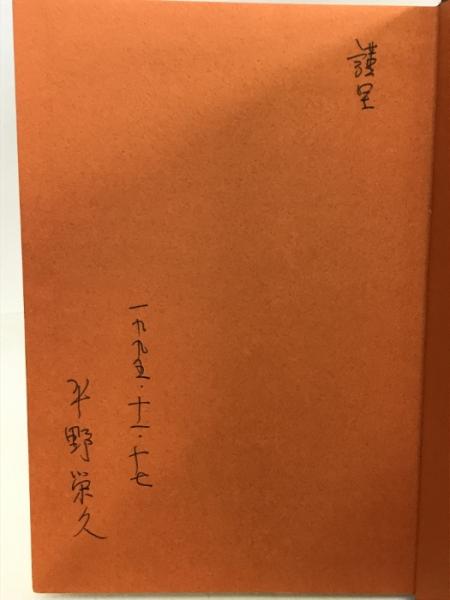 謹呈
一九九五・十一・十七
平野栄久